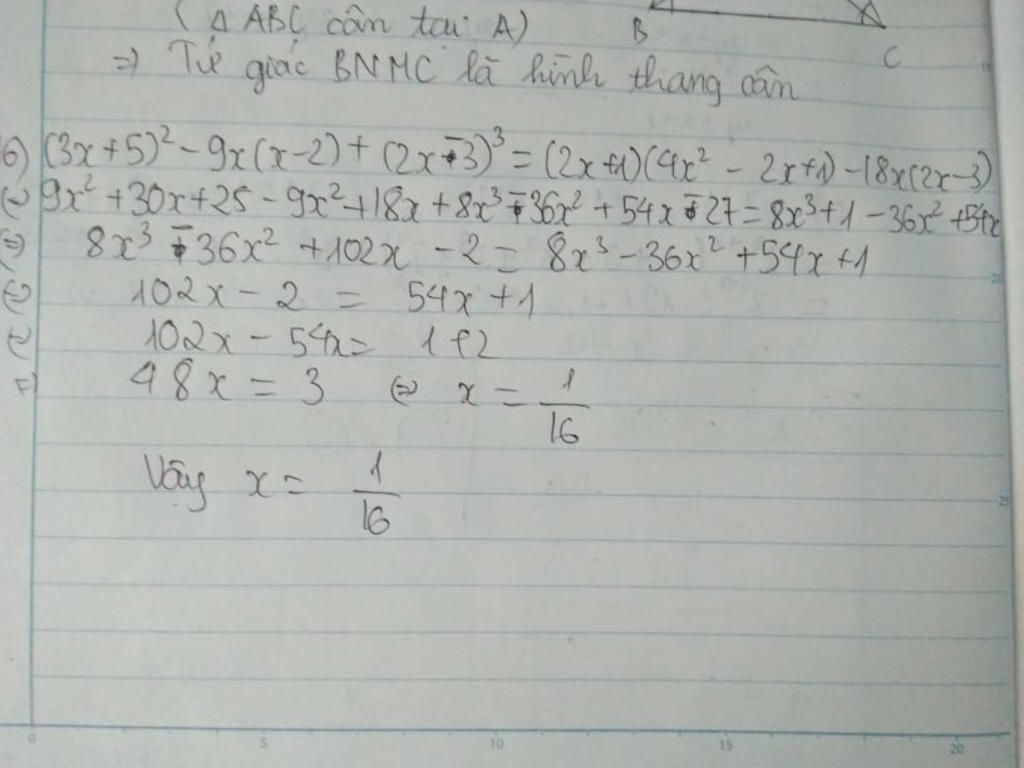 ( Δ ABC cân tại A) B C
=) Tứ giác BNMC là hình thang cân
6) (3x+5)² - 9x(x-2) + (2x-3)³ = (2x+1)(4x² - 2x+1) - 18x(2x-3)
(=) 9x² + 30x + 25 - 9x² + 18x + 8x³ - 36x² + 54x - 27 = 8x³ + 1 - 36x² + 54x
(=) 8x³ - 36x² + 102x - 2 = 8x³ - 36x² + 54x + 1
(=) 102x - 2 = 54x + 1
(=) 102x - 54x = 1 + 2
=) 48x = 3 (=) x = 1/16
Vậy x = 1/16
0 5 10 15 20